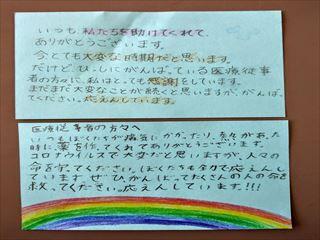 いつも私たちを助けてくれて、
ありがとうございます。
今とても大変な時期だと思います。
だけど、ひっしにがんばっている医療従事
者の方々に、私はとっても感謝をしています。
まだまだ大変なことが続くと思いますが、がんばっ
てください。応えんしています。
医療従事者の方々へ
いつもぼくたちが病気にかかったり、熱があった
時に、薬を作ってくれてありがとうございます。
コロナウイルスで大変だと思いますが、人々の
命を守ってください。ぼくたちも全力で応えんし
ています。ぜひ、がんばってたくさんの人の命を
救ってください。応えんしています!!!